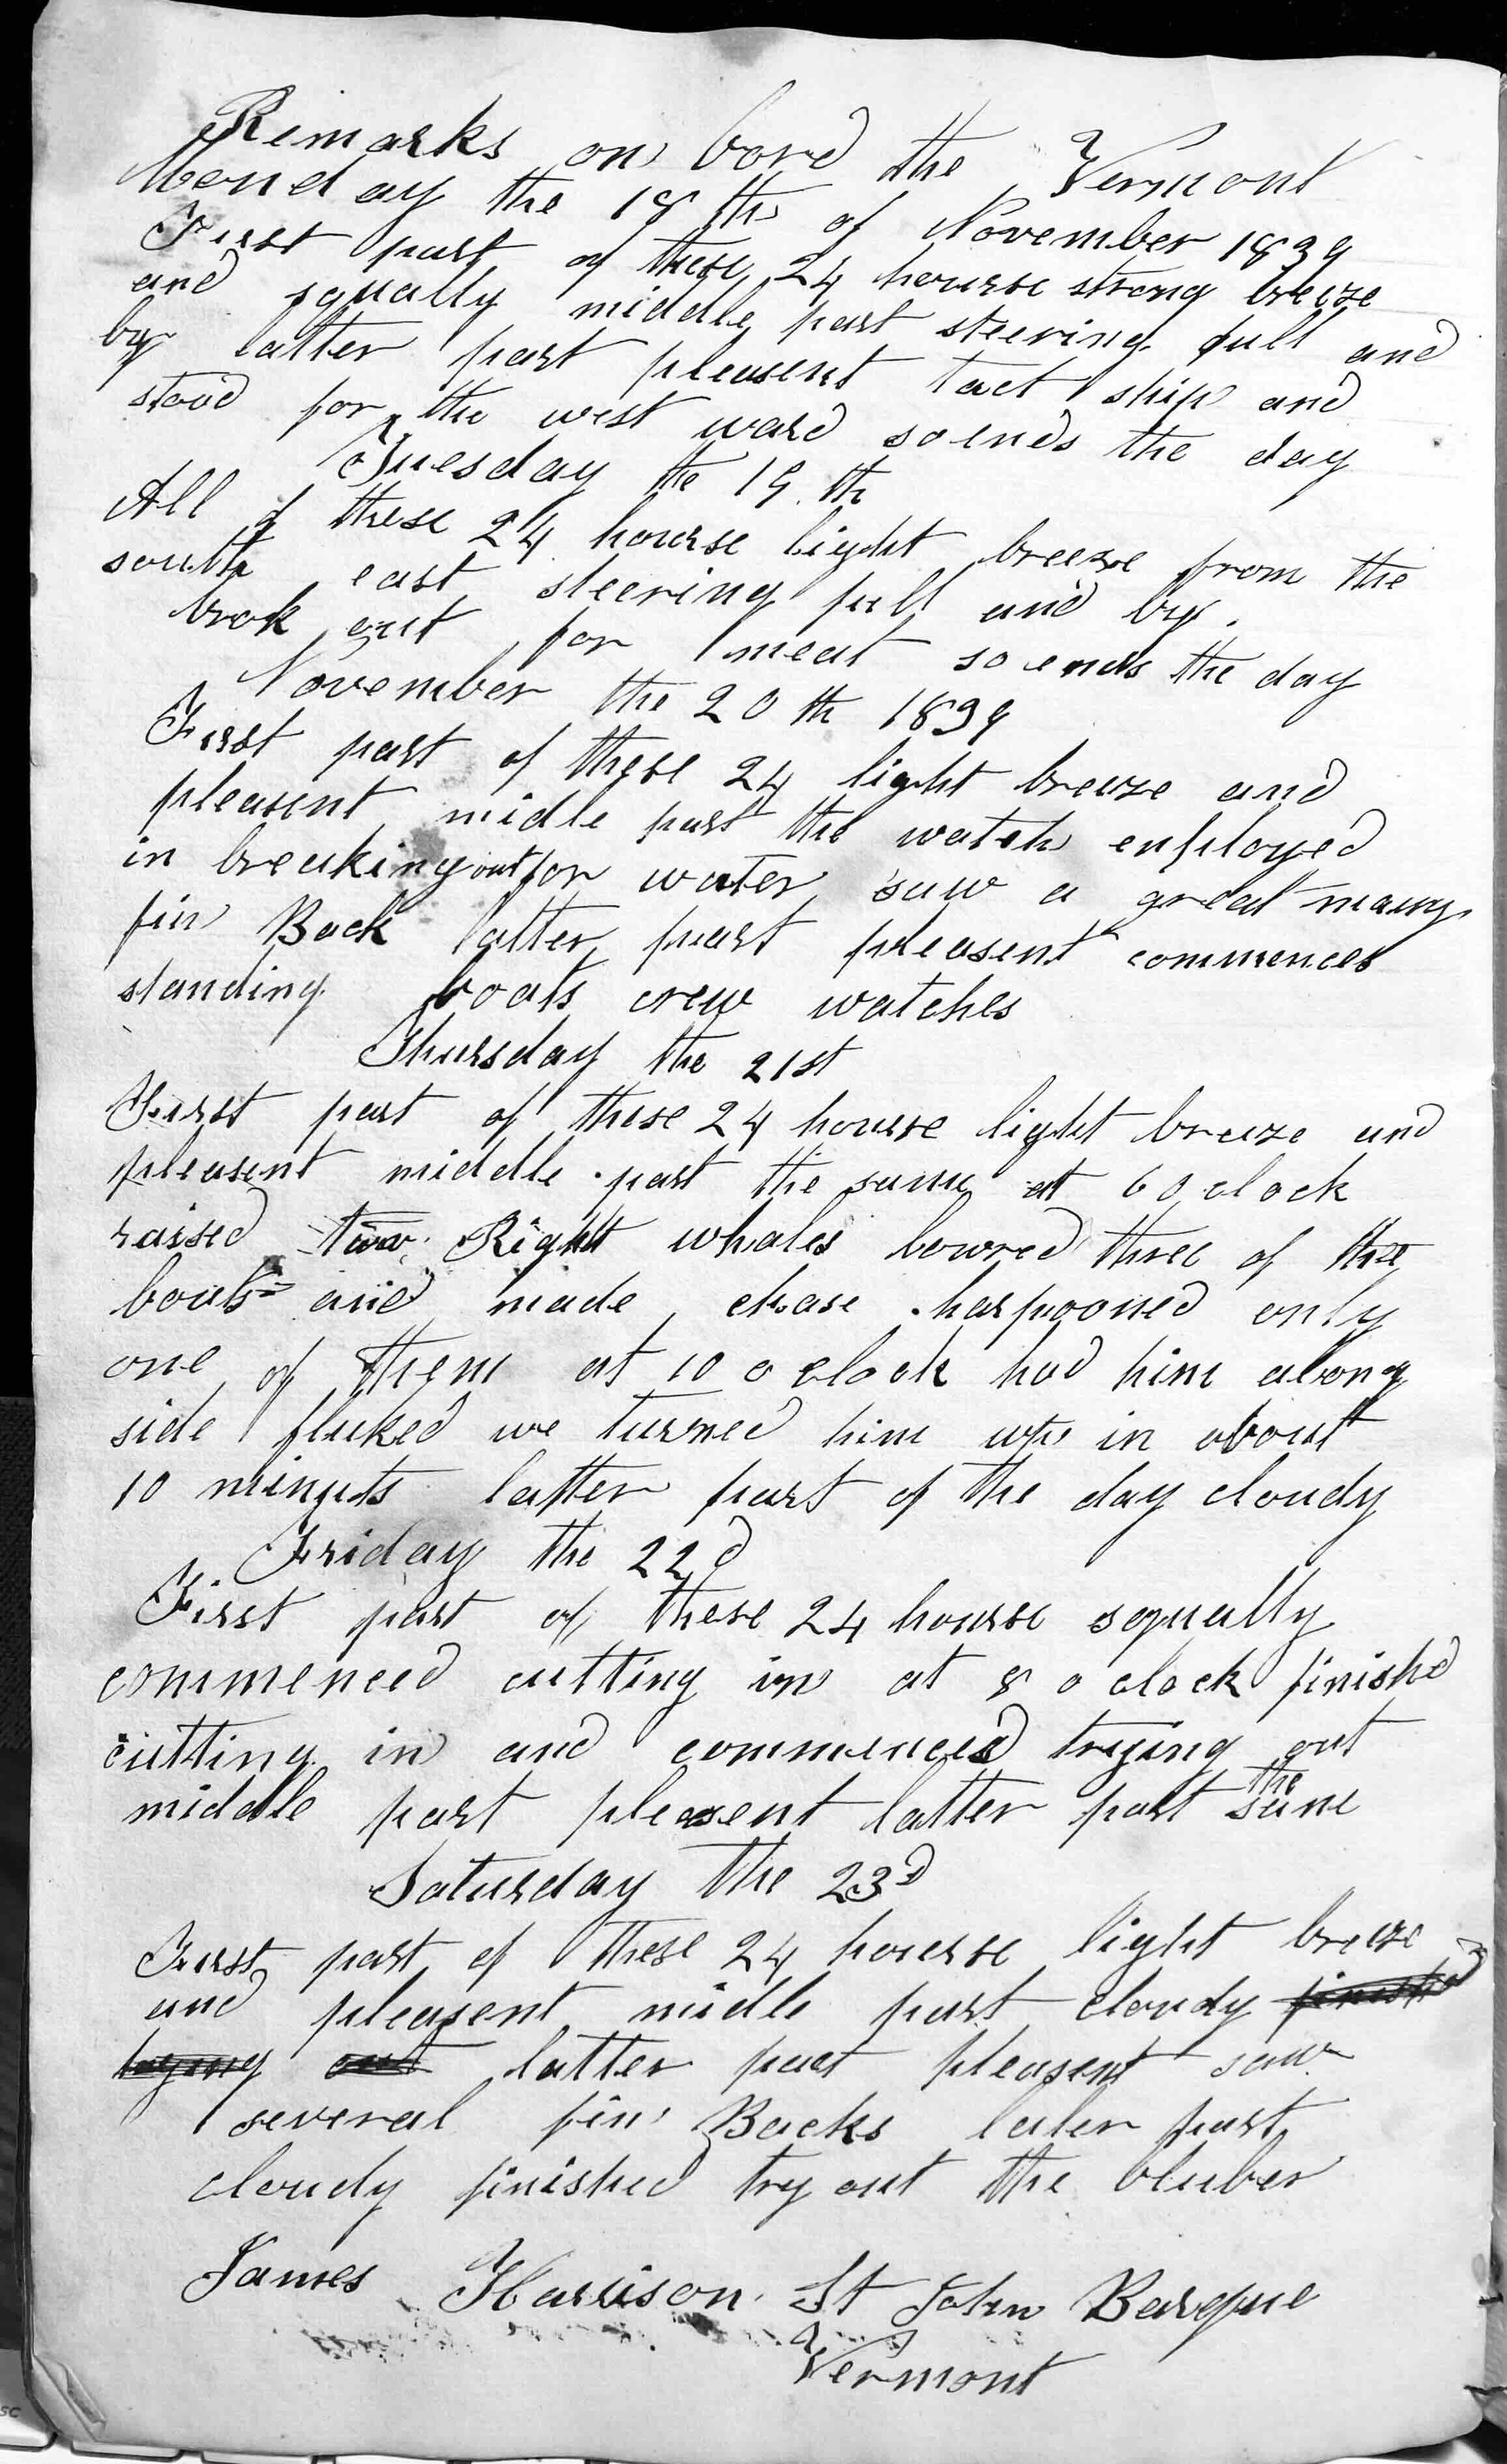 Remarks on bord the Vermont
Monday the 18 th of November 1839
First part of these 24 hourse strong breeze
and squally middle part steering full and
by latter part pleasent tact ship and
stood for the west ward so ends the day
Tuesday the 19. th
All of these 24 hourse light breeze from the
south east steering full and by.
brok out for meat so ends the day
November the 20 th 1839
First part of these 24 light breeze and
pleasent midle part the watch enployed
in breaking out for water saw a great many
fin Back latter part pleasent commences
standing boats crew watches
Thursday the 21st
First part of these 24 hourse light breeze and
pleasent middle part the same at 6 o clock
raised two Right whales lowred three of the
boats and made chase harpooned only
one of them at 10 o clock had him along
side fluked we turned him up in about
10 minuts latter part of the day cloudy
Friday the 22 d
First part of these 24 hourse squally
commenced cutting in at 8 o clock finishd
cutting in and commenced trying out
middle part pleasent latter part the same
Saturday the 23 d
First part of these 24 hourse light breeze
and pleasent midle part cloudy finished
trying out latter part pleasent saw
several fin Backs later part
cloudy finished try out the bluber
James Harrison St John Barque
Vermont